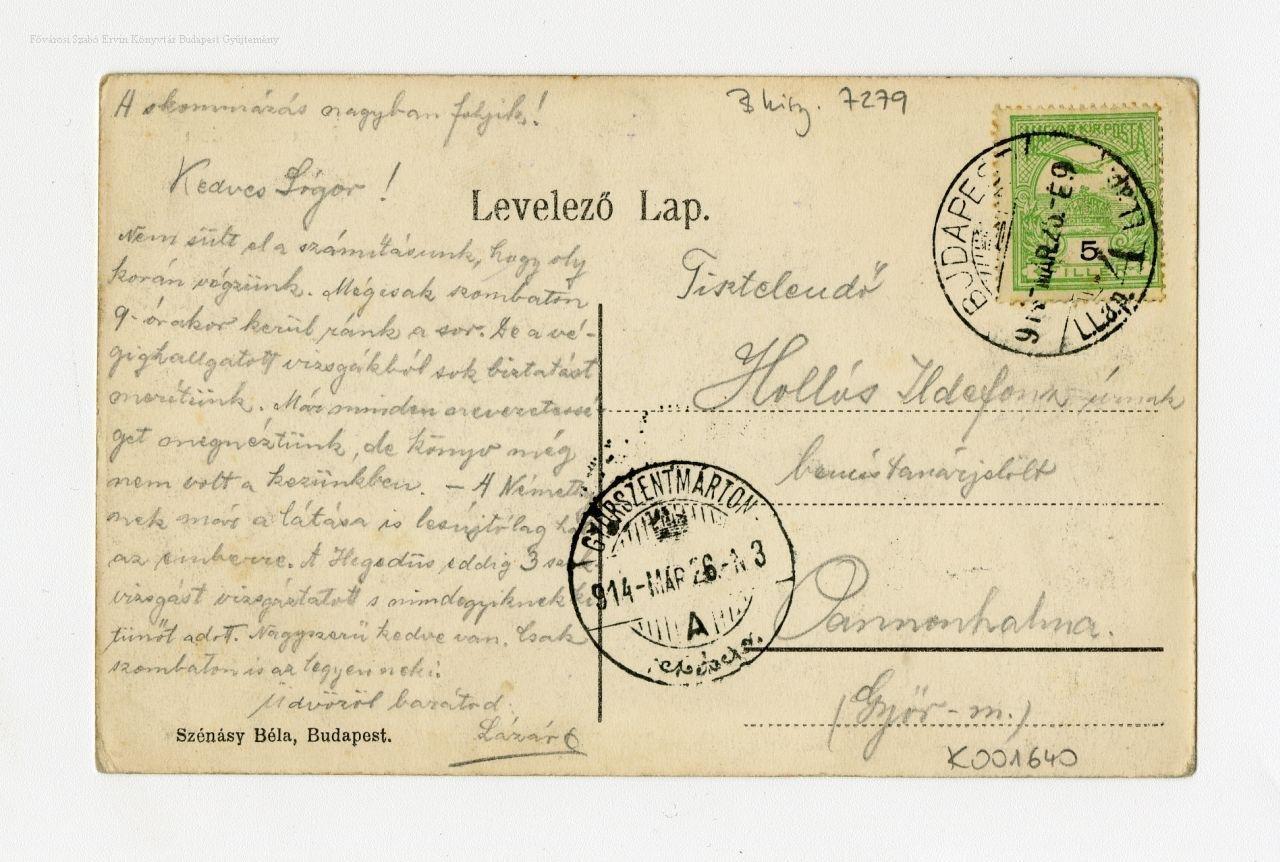 Fővárosi Szabó Ervin Könyvtár Budapest Gyűjtemény
A skommázás nagyban folyik!
7279
Kedves Sógor!
Levelező Lap.
Nem sült el a számításunk, hogy oly
korán végzünk. Mégcsak szombaton
9-órakor kerül ránk a sor. De a vé-
gighallgatott vizsgákból sok biztatást
merítünk. Már minden nevezetessé-
get megnéztünk, de könyv még
nem volt a kezünkben. – A Német-
nek már a látása is lesújtólag
az emberre. A Hegedüs eddig 3
vizsgást vizsgáztatott s mindegyiknek
tünőt adott. Nagyszerű kedve van. Csak
szombaton is az legyen neki.
Üdvözöl barátod
Lázár
Szénásy Béla, Budapest.
MAGYAR KIR. POSTA
5
FILLÉR
BUDAPEST
MÁR. 25.-É.9
Tisztelendő
Hollós Ildefonz úrnak
bencés tanárjelölt
Pannonhalma.
(Győr-m.)
GYŐRSZENTMÁRTON
914-MÁR 26.-N 3
A
K001640